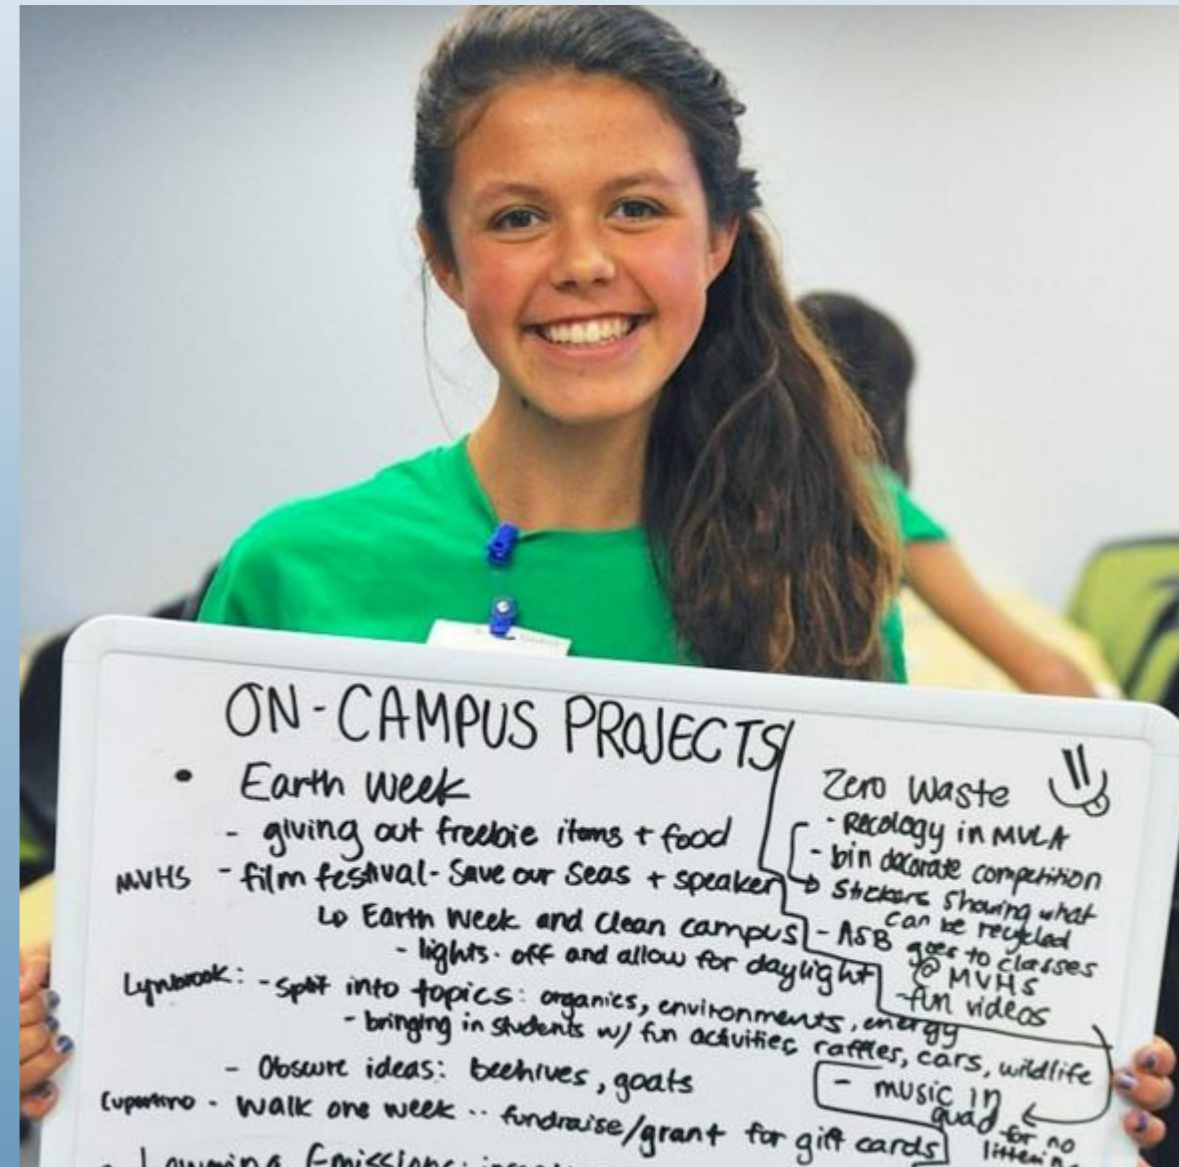 ON-CAMPUS PROJECTS
• Earth Week
- giving out freebie items + food
MVHS - film festival - Save our Seas + speaker
↳ Earth Week and clean campus
- lights off and allow for daylight
Lynbrook: - Split into topics: organics, environments, energy
- bringing in students w/ fun activities, raffles, cars, wildlife
- Obscure ideas: beehives, goats
Cupertino - walk one week .. fundraise/grant for gift cards
Zero Waste
- Recology in MVLA
- bin decorate competition
→ stickers showing what
can be recycled
- ASB goes to classes
@ MVHS
- fun videos
- music in
quad for no